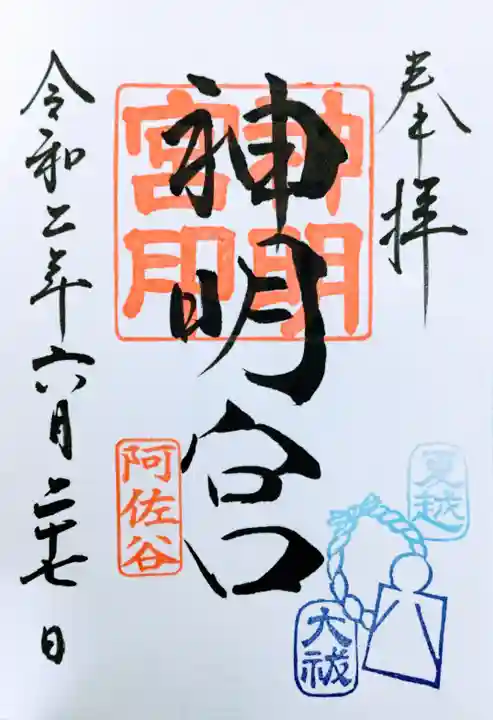 奉拝
夏越
大祓
神明宮
神明宮印
阿佐谷
令和二年六月二十七日